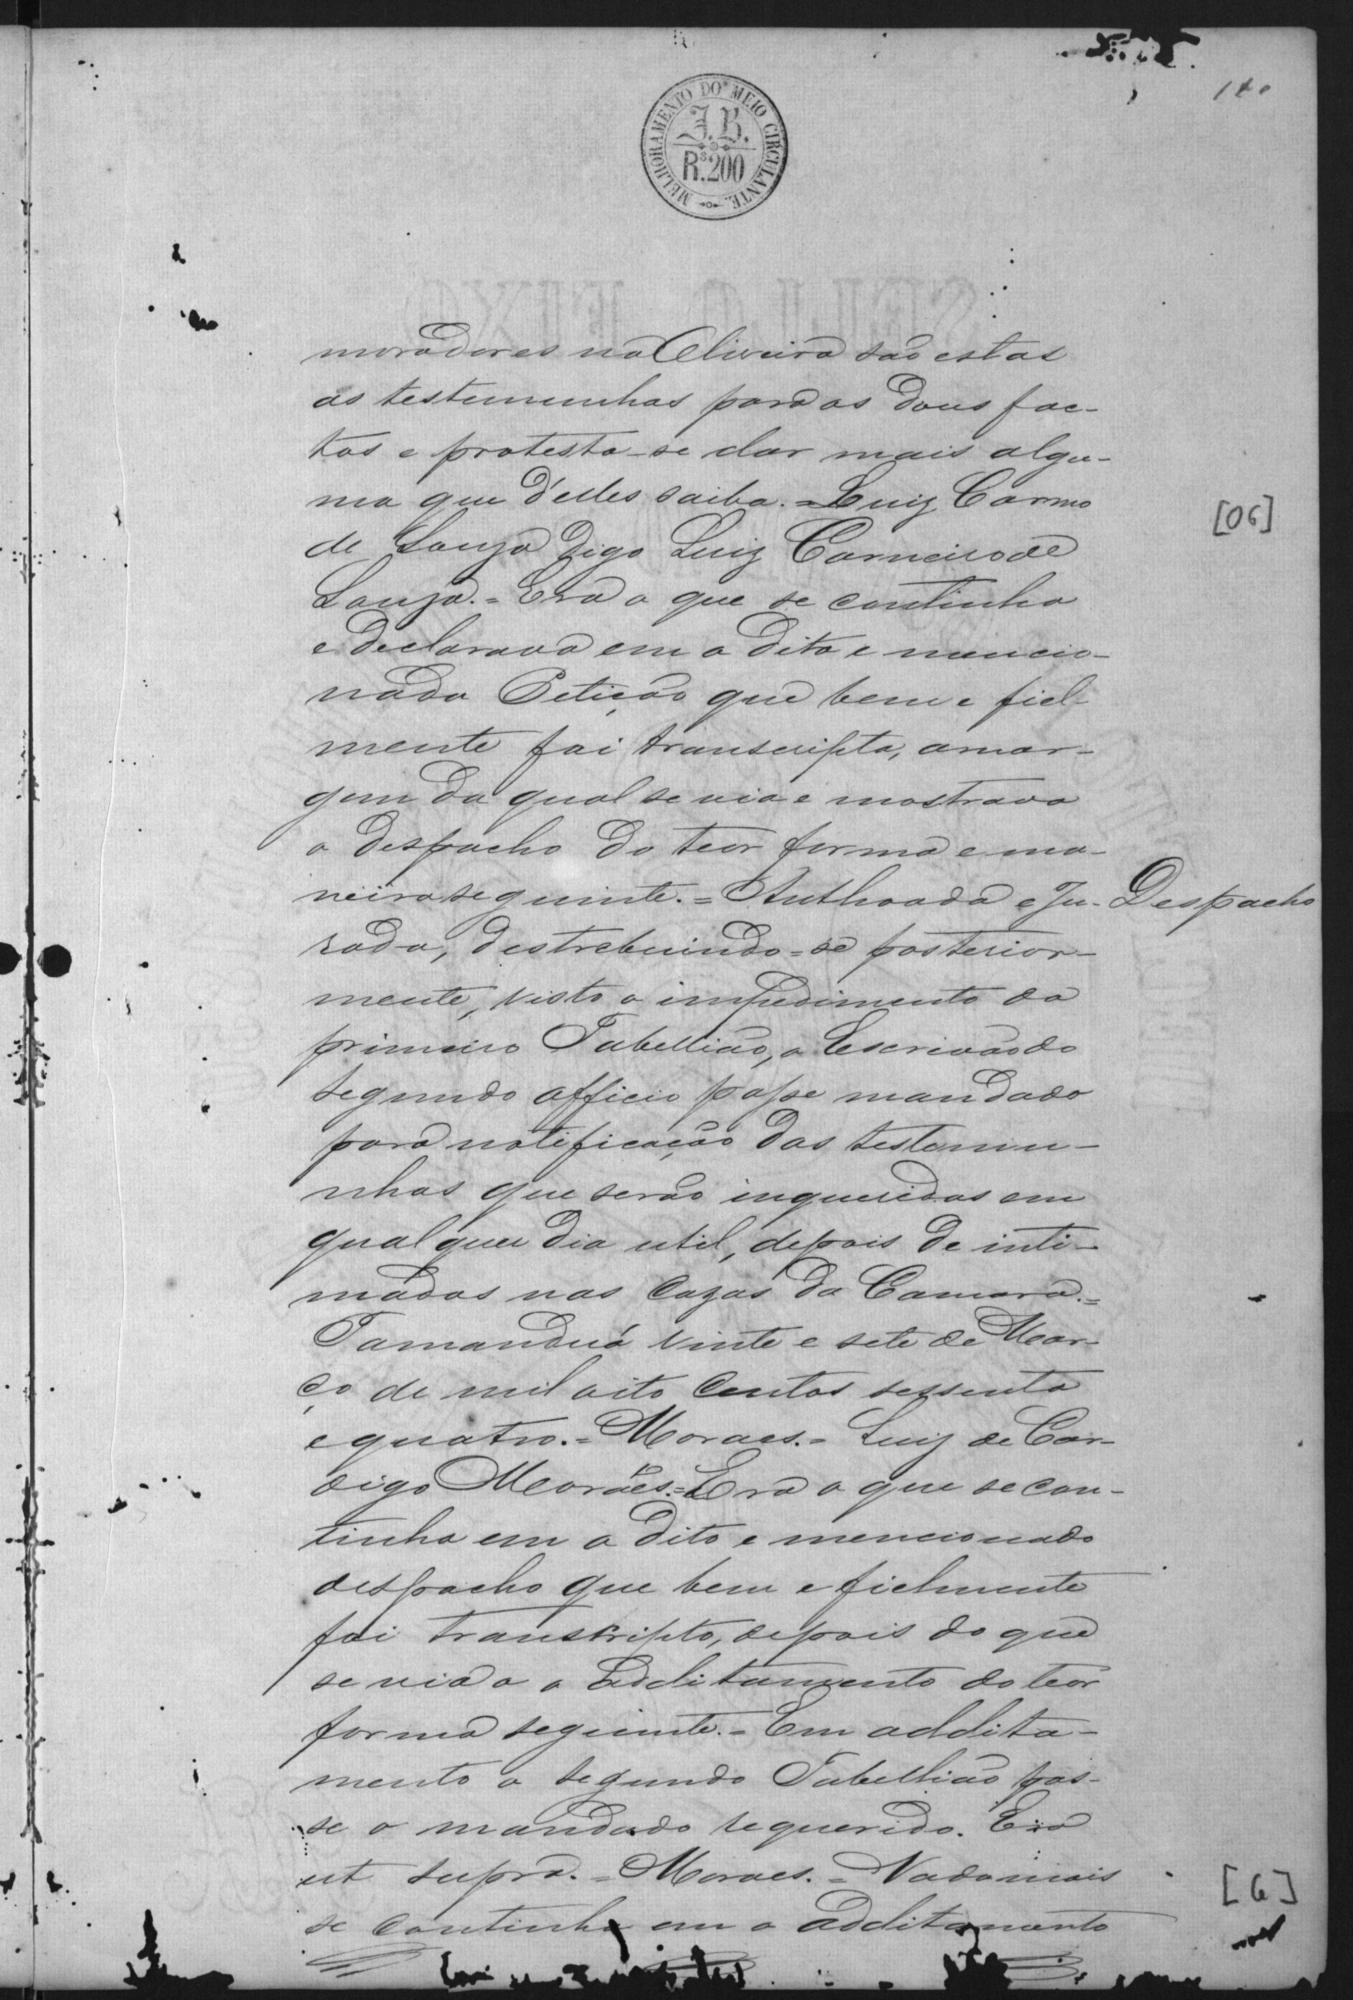 MELHORAMENTO DO MEIO CIRCULANTE
J.B.
Rs.200
moradores na Oliveira são estas
as testemunhas para os dous fac-
tos e protesta-se dar mais algu-
ma que d'elles saiba.=Luiz Carmo
de Souza digo Luiz Carneiro de
Souza.=Era o que se continha
e declarava em a dita e mencio-
nada Petição que bem e fiel-
mente foi transcripta, amar-
gem da qual se via e mostrava
o despacho do teor forma e ma-
neira seguinte.=Authoada e Ju-
Despacho
rada, destrebuindo=se posterior-
mente, visto o impedimento do
primeiro Tabellião, o Escrivão do
segundo officio passe mandado
para notificação das testemu-
nhas que serão inqueridas em
qualquer dia util, depois de inti-
madas nas Cazas da Camara.=
Tamanduá vinte e sete de Mar-
ço de mil oito centos sessenta
e quatro.=Moraes.=Luiz de Car-
digo Moraes.=Era o que se con-
tinha em o dito e mencionado
despacho que bem e fielmente
foi transkripto, depois do que
se via o additamento do teor
forma seguinte.=Em addita-
mento o segundo Tabellião pas-
se o mandado requerido. Era
ut supra.=Moraes.=Nadamais
se continha em o additamento
[06]
[6]